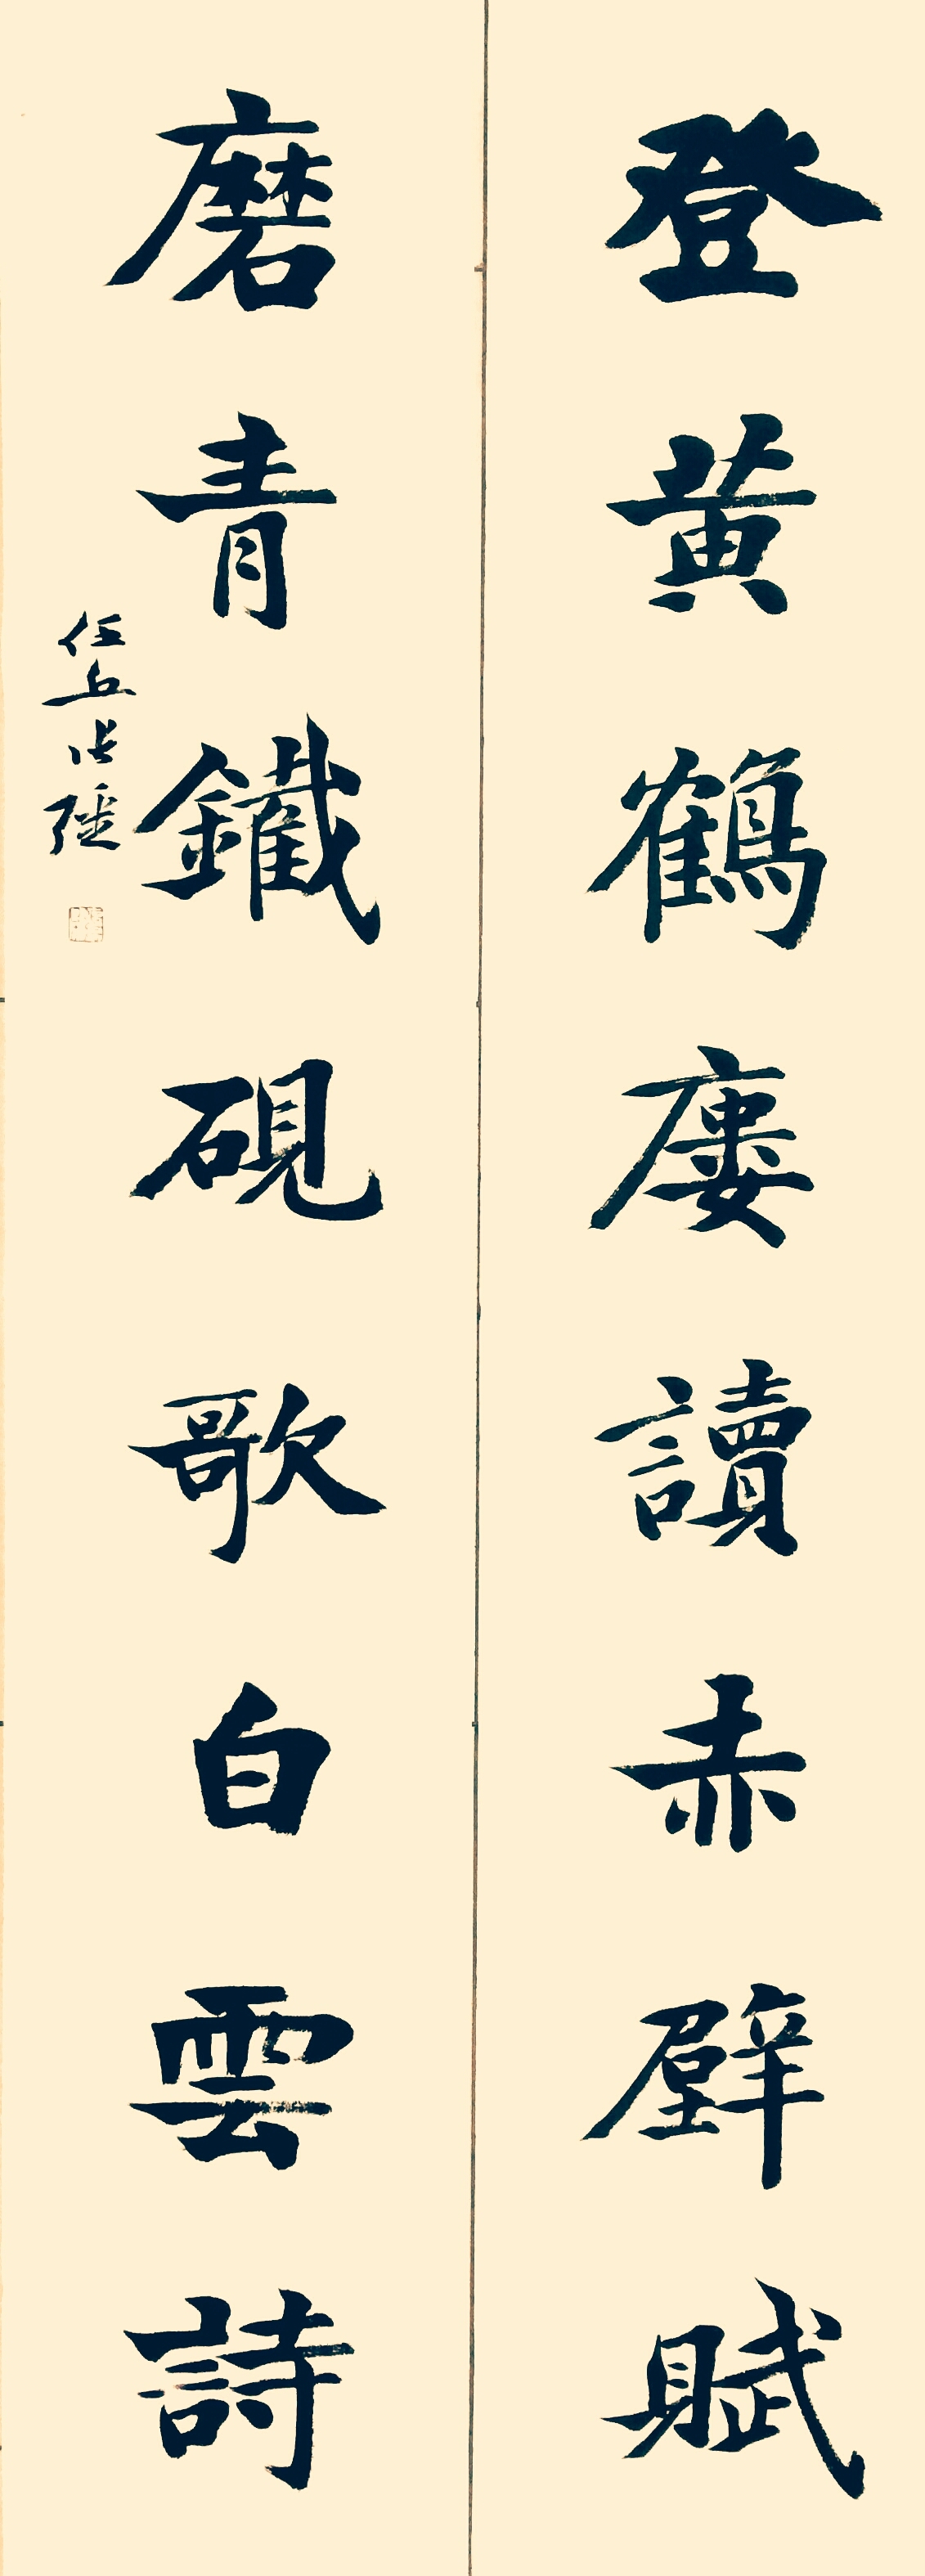 登黄鶴廔讀赤壁賦
磨青鐵硯歌白雲詩
任丘